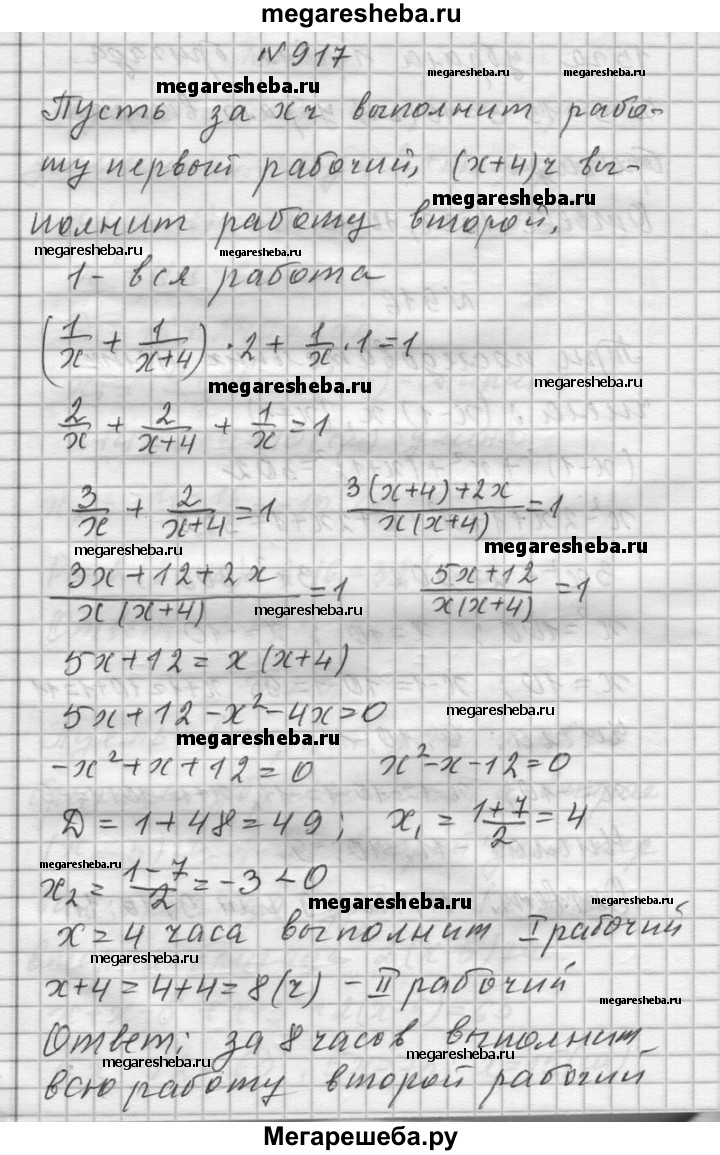 megaresheba.ru
№917
megaresheba.ru megaresheba.ru
Пусть за x ч выполнит рабо-
ту первый рабочий, (x+4)ч вы-
megaresheba.ru
полнит работу второй.
megaresheba.ru megaresheba.ru
1 - вся работа
(1/x + 1/(x+4)) · 2 + 1/x · 1 = 1
megaresheba.ru megaresheba.ru
2/x + 2/(x+4) + 1/x = 1
3/x + 2/(x+4) = 1 (3(x+4)+2x)/(x(x+4)) = 1
megaresheba.ru megaresheba.ru
(3x+12+2x)/(x(x+4)) = 1 (5x+12)/(x(x+4)) = 1
megaresheba.ru
5x+12 = x(x+4)
5x+12-x²-4x=0
megaresheba.ru megaresheba.ru
-x²+x+12=0 x²-x-12=0
D = 1+48=49; x₁ = (1+7)/2 = 4
megaresheba.ru
x₂ = (1-7)/2 = -3 < 0
megaresheba.ru megaresheba.ru
x = 4 часа выполнит I рабочий
megaresheba.ru
x+4 = 4+4 = 8(ч) - II рабочий
megaresheba.ru
Ответ: за 8 часов выполнит
megaresheba.ru
всю работу второй рабочий
Мегарешеба.ру